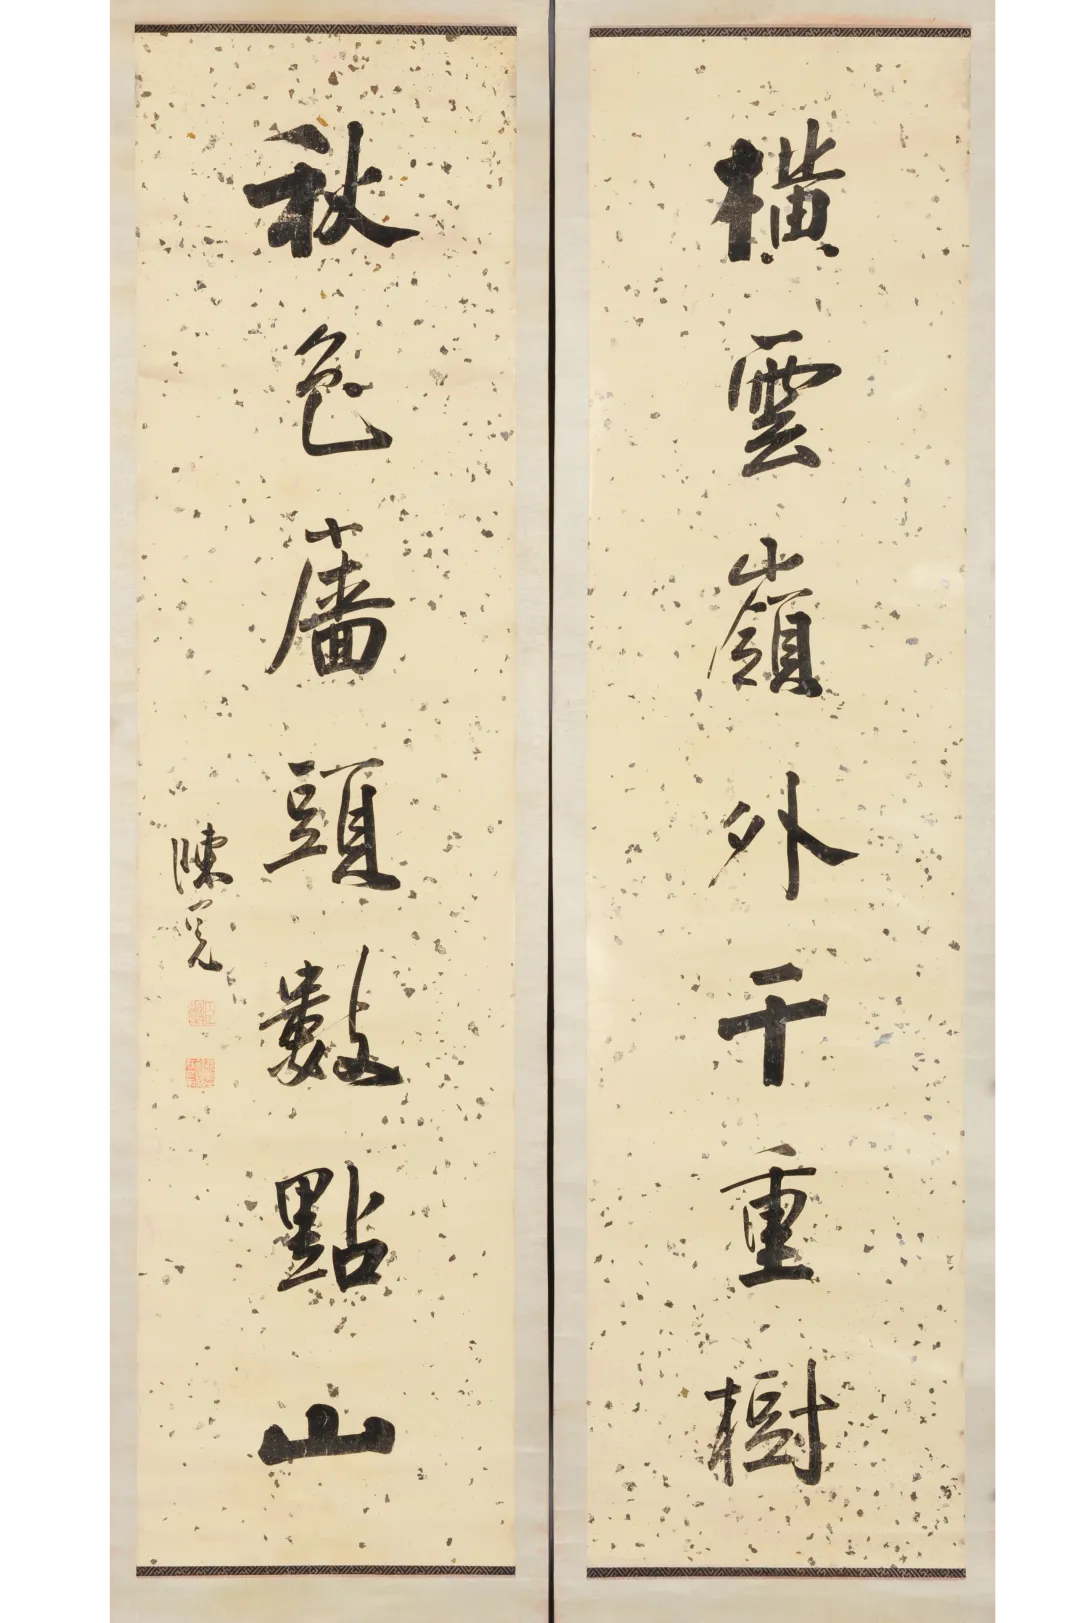 橫雲嶺外千重樹
秋色廧頭數點山
陳冕